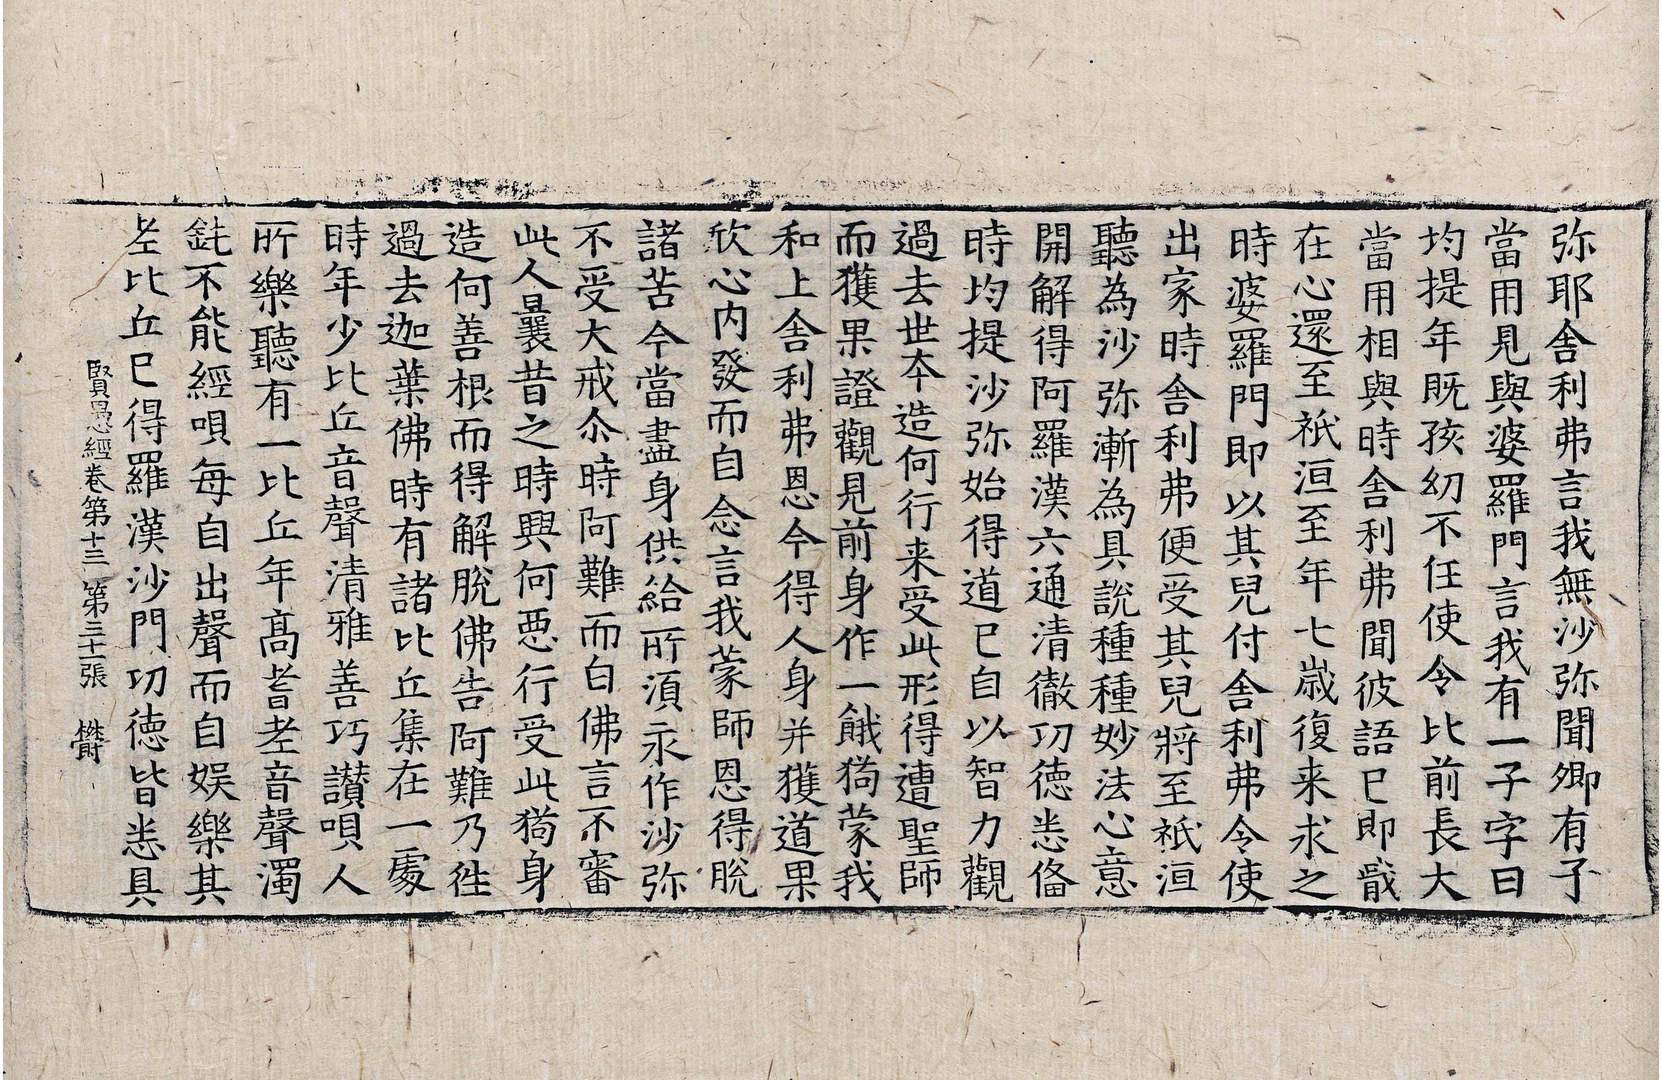 弥耶舍利弗言我無沙弥聞卿有子
當用見與婆羅門言我有一子字曰
均提年既孩幼不任使令比前長大
當用相與時舍利弗聞彼語已即戢
在心還至祇洹至年七歳復来求之
時婆羅門即以其兒付舍利弗令使
出家時舍利弗便受其兒將至祇洹
聽為沙弥漸為具說種種妙法心意
開解得阿羅漢六通清徹功徳悉俻
時均提沙弥始得道已自以智力觀
過去世夲造何行来受此形得遭聖師
而獲果證觀見前身作一餓狗蒙我
和上舍利弗恩今得人身并獲道果
欣心内發而自念言我蒙師恩得脫
諸苦今當盡身供給所湏永作沙弥
不受大戒尒時阿難而白佛言不審
此人曩昔之時興何惡行受此狗身
造何善根而得解脫佛告阿難乃徃
過去迦葉佛時有諸比丘集在一處
時年少比丘音聲清雅善巧讃唄人
所樂聽有一比丘年髙耆老音聲濁
鈍不能經唄每自出聲而自娯樂其
老比丘已得羅漢沙門功徳皆悉具
賢愚經卷第十三 第三十一張 欝